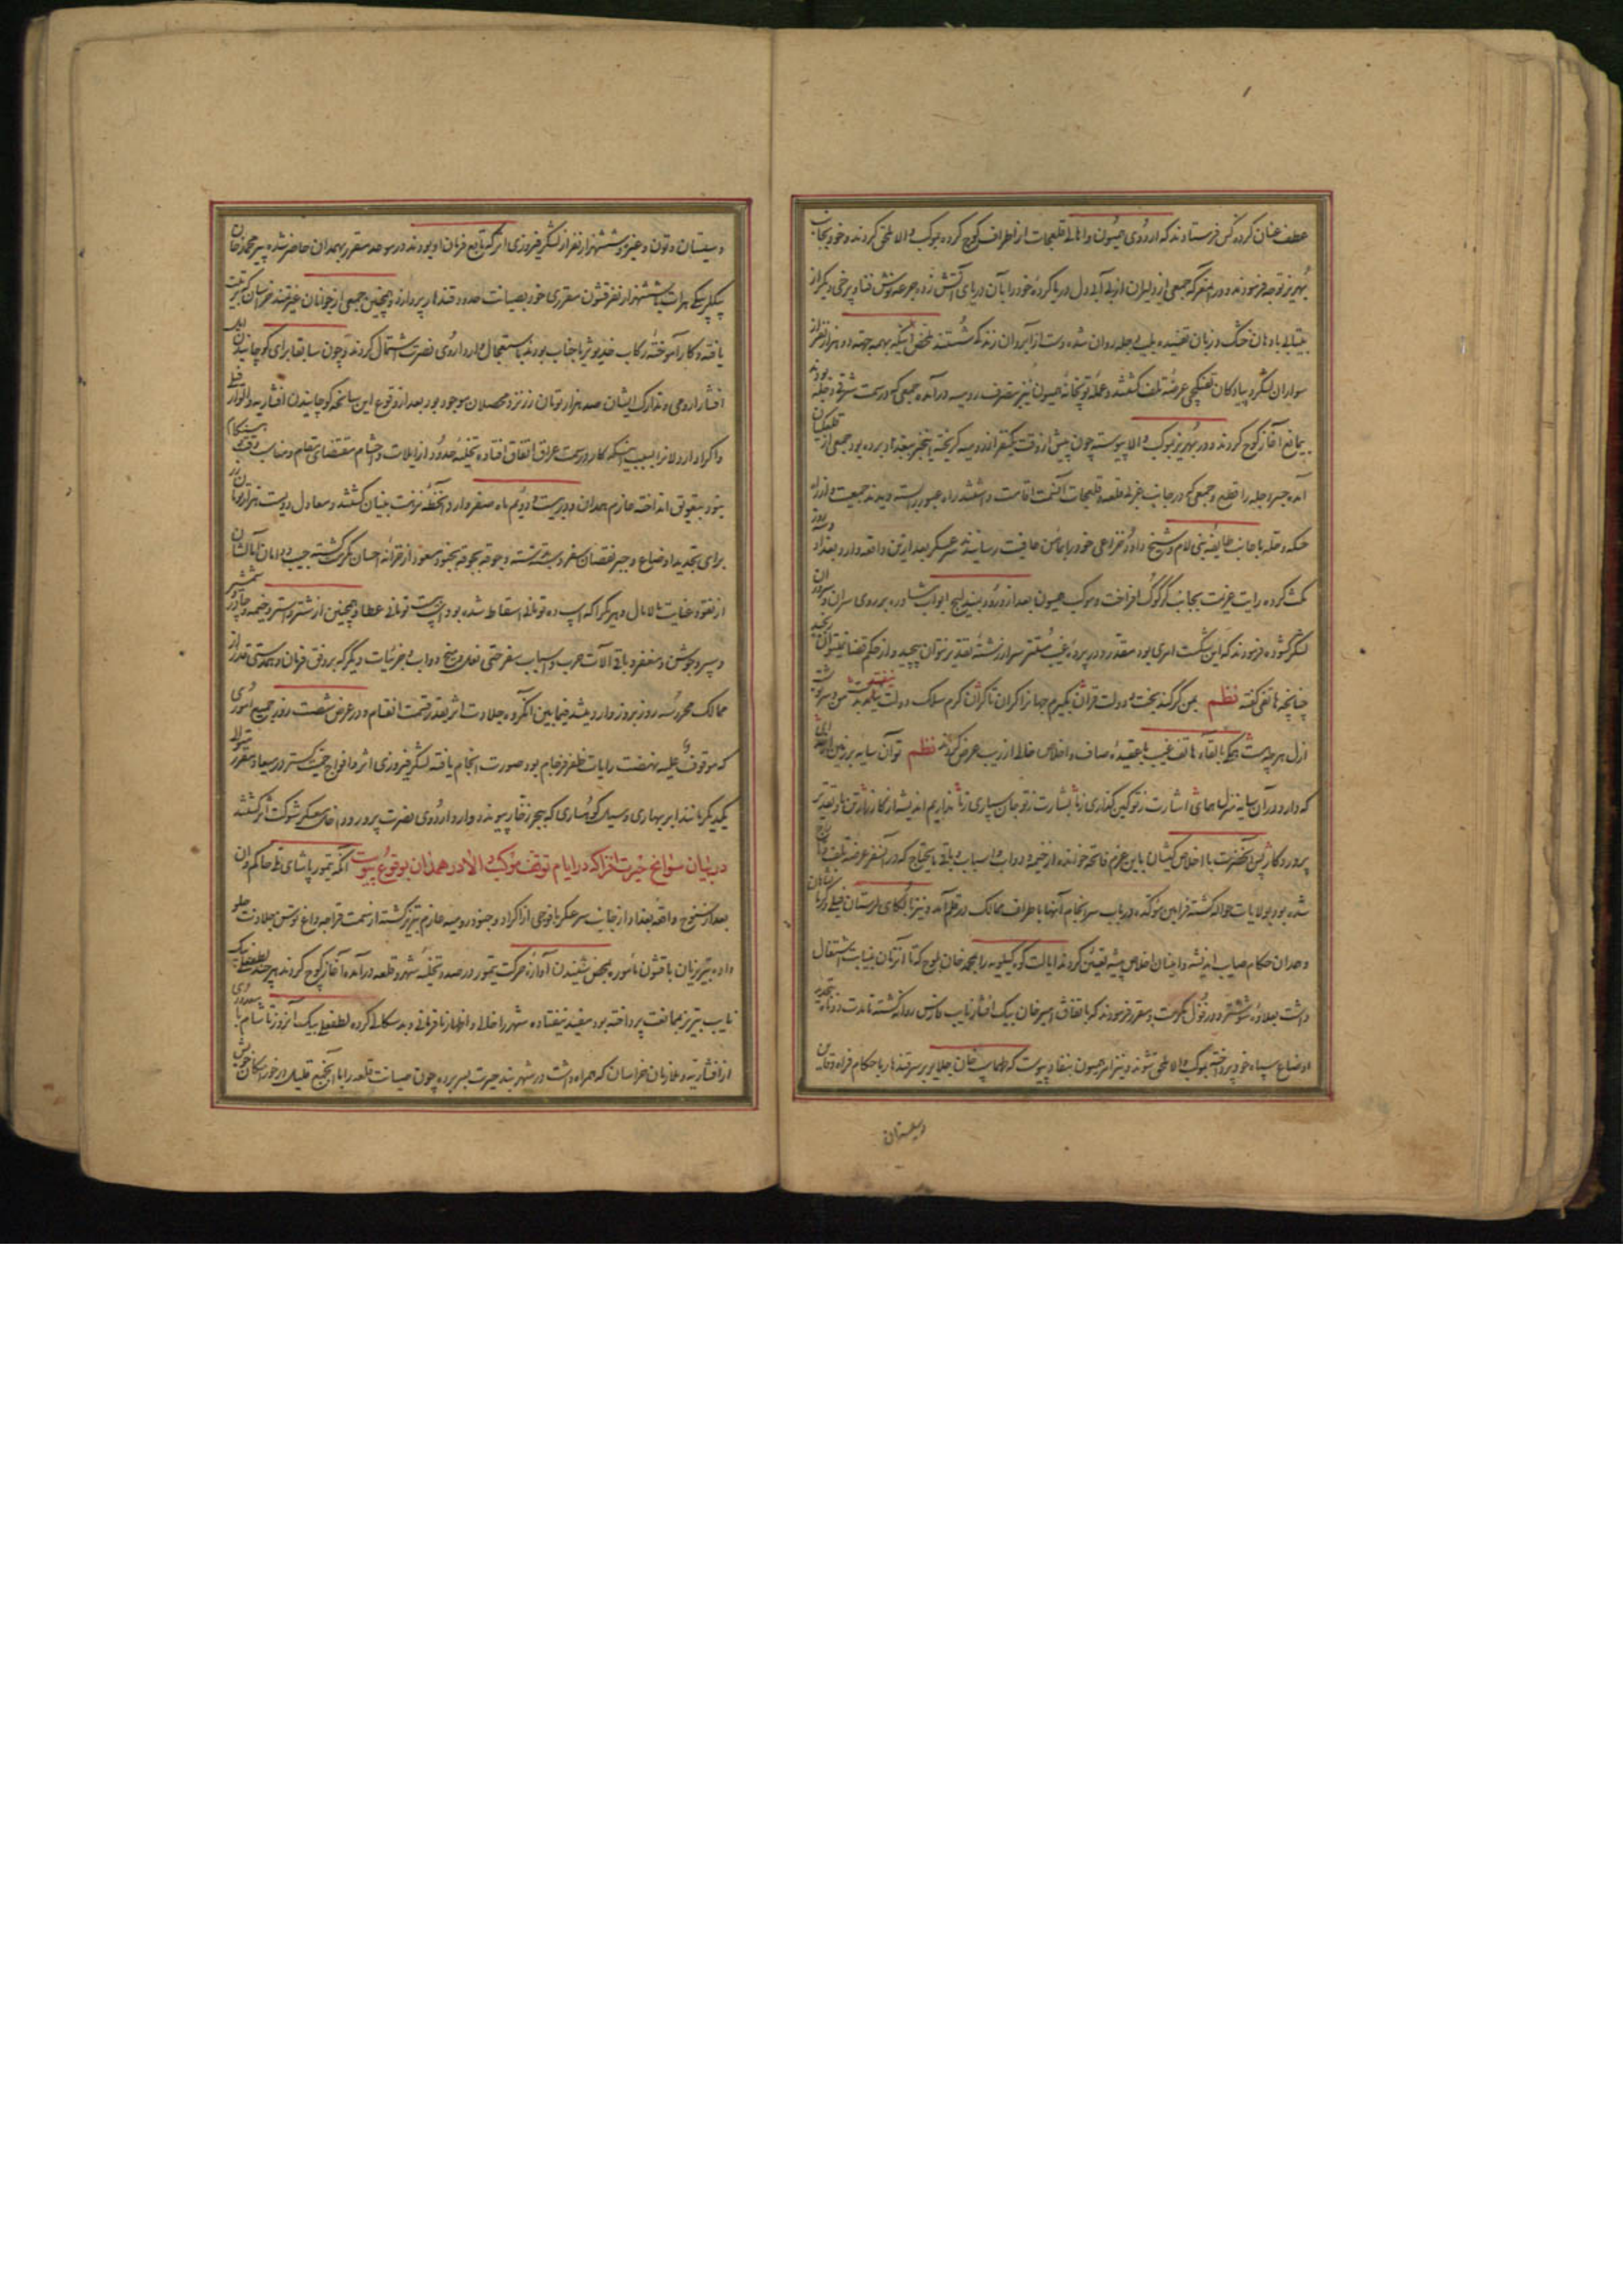 عطف عنان کرده کس فرستادند که اردوی همیون و اهالی قلعجات از اطراف کوچ کرده بموکب والا ملحق کردند و خود بجانب
بهریز توجه فرمودند و در سفر که جمعی از دلیران از بی آبی دل دریا کرده خود را بآن دریای آتش زده جرعه نوش فنا و برخی دیگر از
بیتابی با دهان خشک و زبان تفتیده بلب دجله روان شده دست از آبروان زندکی شستند ملخص اینکه بهمه جهته دو هزار نفر از
سواران لشکر و پیادکان تفنکچی عرضه تلف کشتند و عمله توپخانه همیون نیز بتصرف رومیه درآمده جمعی که در سمت شرقی دجله بودند
بیمانع آغاز کوچ کردند و در بهریز بموکب والا پیوسته چون پیش از وقت یکنفر از رومیه کریخته اینخبر ببغداد برده بود جمعی از قلعکیان
آمده جسر دجله را قطع و جمعی که در جانب غربی قلعه و قلیجات آنسمت اقامت داشتند راه عبور را بسته دیدند جمعیت و از راه
حسکه و حله با جانب طایفه بنی لام و شیخ داود خزاعی خود را بمأمن عافیت رسانیدند سرعسکر بعد ازین واقعه وارد بغداد و سه روز
مکث کرده رایت عزیمت بجانب کرکوک افراخت و موکب همیون بعد از ورود بمندلیج ابواب مشاوره بر روی سران و سروران
لشکر کشوده فرمودند که این شکست امری بود مقدر و در پرده غیب مستتر سر از رشته تقدیر نتوان پیچید و از حکم قضا نمیتوان رنجید
چنانچه هاتفی کفته نظم بمن کر کند بخت و دولت قران بکیرم جهان از کران تا کران کرم سلک دولت بیفتد ز دست من و سرنوشت
ازل هر چه هست همکی بالقاء هاتف غیب با عقیده صاف و اخلاص خالی از ریب عرض کردند نظم تو آن سایه بر زمین ایزدی
که دارد در آن سایه منزل همای اشارت ز تو کین کذاری ز ما بشارت ز تو جان سپاری ز ما نداریم اندیشه از کارزار تن ما و تقدیر
پرورد کار پس آنحضرت با اخلاص کیشان باین عزم فاتحه خوانده از خیمه و دواب و اسباب و باقی مایحتاج که در آنسفر عرضه تلف و تاراج
شده بود بولایات حواله کشته فرامین مؤکده در باب سرانجام آنها باطراف ممالک در قلم آمد و نیز بالکای لرستان فیلی و کرمانشاهان
و همدان حکام صایب اندیشه و اعیان اخلاص پیشه تعیین کردند ایالت کوه کیلویه را بمحمد خان بلوچ که تا آنزمان بنیابت اشتغال
داشت بعلاوه شوشتر و دزفول مکرمت و مقرر فرمودند که باتفاق امیر خان بیک افشار نایب فارس روانه کشته تا مدت دو ماه بتجدید
اوضاع سپاه خود پرداخته بموکب والا ملحق شوند و نیز امر همیون بنفاذ پیوست که طهماسب خان جلایر بر سر قندهار با حکام فراه و قاین
و سیستان
و سیستان و تون و غیره و ششهزار نفر از لشکر فیروزی اثر که تابع فرمان او بودند در موعد مقرر بهمدان حاضر شده پیر محمد خان
بیکلربیکی هرات با ششهزار نفر قشون مقرری خود بصیانت حدود قندهار پردازد و همچنین جمعی از جوانان غیرتمند خراسان که تربیت
یافته و کارآموخته رکاب خدیو ثریا جناب بودند باستعجال وارد اردوی نصرت اشتمال کردند و چون سابقا برای کوچانیدن ایل
افشار ارومی و تدارک ایشان صد هزار تومان زر نزد محصلان موجود بود بعد از وقوع این سانحه کوچانیدن افشاریه و الوار فیلی
و اکراد اردلانرا بسبب اینکه کار در سمت عراق اتفاق افتاده تخلیه حدود از ایلات و احشام مقتضای مقام و مناسب وقت و هنکام
نبود بتعویق انداخته عازم همدان و در بیست و دویم ماه صفر وارد آنخطه نزهت بنیان کشتند و معادل دویست هزار تومان زر
برای تجدید اوضاع و جبر نقصان سفر دسته دسته و جوقه بجوقه بجنود مسعود از خزانه احسان مکرمت کشته جیب و دامان آمالشان
از نقود عنایت مالامال و هر کرا که اسب ده تومانی اسقاط شده بود اسب بیست تومانی عطا و همچنین از شتر و استر و خیمه و چادر و شمشیر
و سپر و جوشن و مغفر و باقی آلات حرب و اسباب سفر حتی نعل و میخ دواب و جزئیات دیگر که بر وفق فرمان و همدستی قدر از
ممالک محروسه روز بروز وارد میشد فیما بین آنکروه جلادت اثر بقدر قسمت انقسام و در عرض شصت روز جمیع اموری
که موقوف علیه نهضت رایات ظفر فرجام بود صورت انجام یافته لشکر فیروزی اثر و افواج حمیت کستر در میعاد مقرر متوالی
یکدیکر مانند ابر بهاری و سیل کوهساری که ببحر زخار پیوندد وارد اردوی نصرت پرور و داخل معسکر شوکت اثر کشتند
در بیان سوانح خیرت افزا که در ایام توقف موکب والا در همدان بوقوع پیوست آنکه تیمور پاشای ملی حاکم وان
بعد از سنوح واقعه بغداد از جانب سرعسکر با فوجی از اکراد و جنود رومیه عازم تبریز کشته از سمت قراجه داغ توسن جلادت جلو
داده تبریزیان با قشون مأموره بمحض شنیدن آوازه حرکت تیمور در صدد تخلیه شهر و قلعه درآمده آغاز کوچ کردند هر چند لطفعلی بیک
نایب تبریز بممانعت پرداخته بود مفید نیفتاده شهر را خالی و اظهار نافرمانی و بد سکالی کرده لطفعلی بیک آنروز تا شام با معدودی
از افشاریه و ملازمان خراسان که همراه داشت در شهر بند حیرت بسر برده چون صیانت قلعه را با آنجمع قلیل در خور امکان خویش